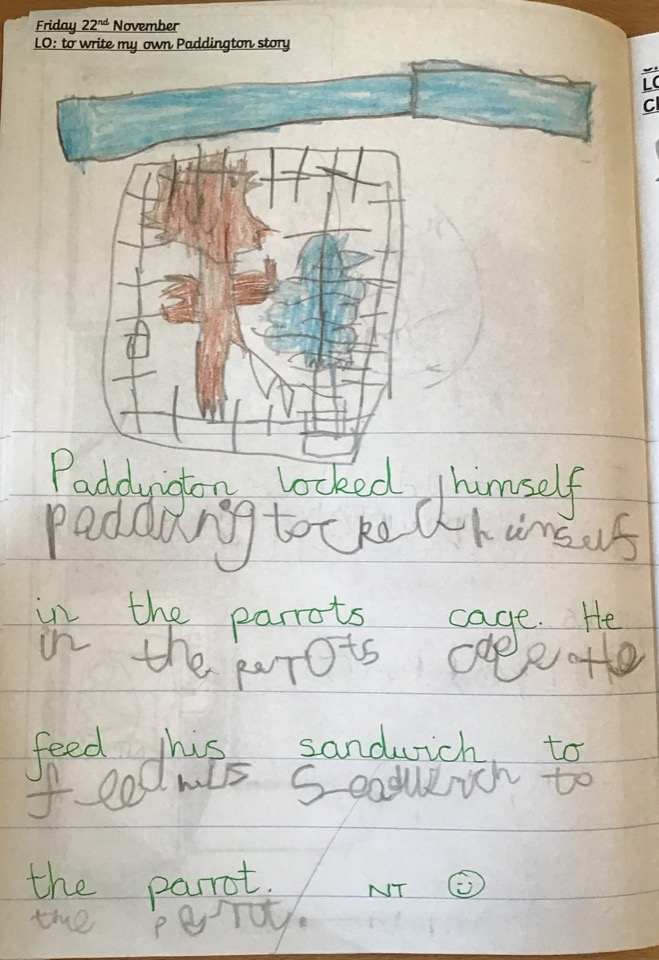 Friday 22nd November
LO: to write my own Paddington story
LO
Paddington locked himself
paddington cked himself
in the parrots cage. He
in the perrots cage He
feed his sandwich to
feed his Seadwich to
the parrot. NT ☺
the perrot.